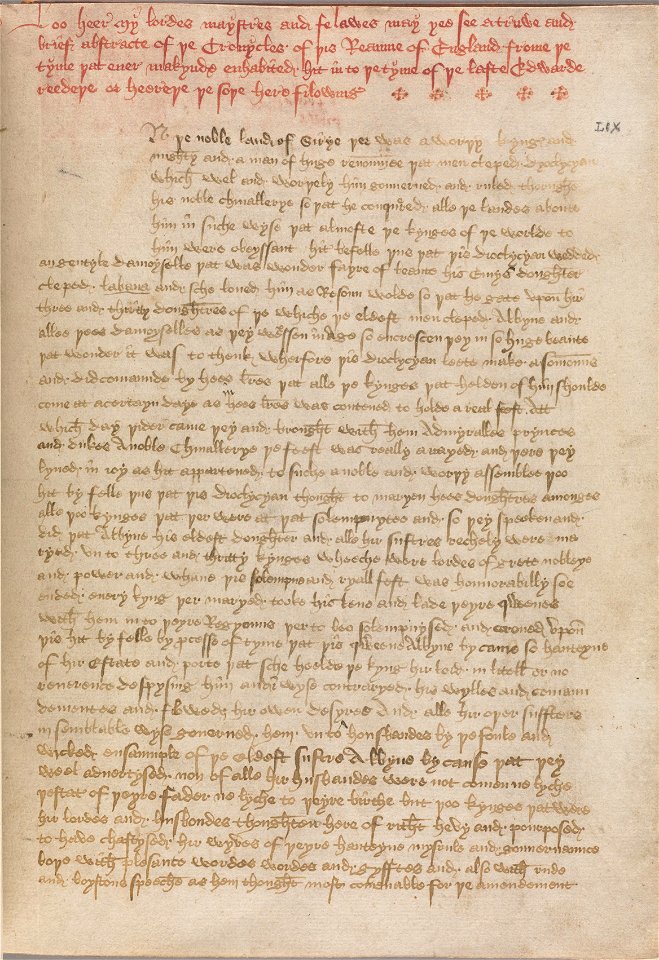 Loo heer my lordes maystres and felawes may yee see a truwe and
brief abstracte of þe Cronycles of þis Reaume of England frome þe
tyme þat ener mankynde enhabited hit in to þe tyme of þe laste Edwarde
reedeþe or heereþe þe sope here filowing
LIX
N þe noble land of Sirye þer was a worþy kyng and
mighty and a man of huge renommee þat men cleped Dyoclycyan
which wel and worþely him gouuerned and ruled thorughe
his noble chiuallerye so þat he conquered alle þe landes aboute
him in suche wyse þat almoste þe kynges of þe worlde to
him were obeyssant hit befelle þus þat þis dioclycyan wedded
an gentyle damoyselle þat was wonder fayre of beaute his Emys doughter
cleped labana and sche loued him as Resoun wolde so þat he gate vpon hir
three and thritty doughtres of þe whiche þe eldest men cleped Albyne and
alles þees damoyselles as þey wexsen in age so encrescen þey in so huge beaute
þat wonder it was to thenk wherfore þis dioclycyan leete make a somouns
and did comaunde by hees lres þat alle þe kynges þat holden of him shoulde
come at a certayn daye as in hees lres was contened to holde a real feest Att
which day þider came þey and brought with hem Admyralles prynces
and dukes A noble Chiuallerye þe feest was really arrayed and þere þey
lyued in ioy as hit appertened to suche a noble and worþy assemblee þoo
hit by felle þus þat þis dioclycyan thought to maryen hees doughtres amonges
alle þoo kynges þat þer were at þat solempnytee and so þey speeken and
did þat Albyne his eldest doughter and alle hir sustres rychely were ma
ryed vn to three and thritty kynges wheeche were lordes of grete nobleye
and power and whane þis solempne and ryall fest was honnorabilly soe
ended euery kyng þer maryed tooke his leue and lade þeyre qweenes
with hem in to þeyre Regyouns þer to beo solempnysed and croned vpon
þis hit by felle by processe of tyme þat þis qweene Albyne by came so hauteyne
of hir estate and porte þat sche heelde þe kyng hir lord in litell or no
reuerence despysing him and in wyse contraryed his wylles and comaun
dementes and filowed hir owen desyres And alle hir oþer sustres
in semblable wyse gouerned hem vn to housbandes by þe foule and
wicked ensaumple of þe eldest sustre Albyne by cause þatt þey
weel aduertysed non of alle hir husbandes were not comen ne lyche
þestat of þeyre fader ne lyche to þeyre birthe but þoo kynges þat were
hir lordes and husbondes thoughten here of right hevy and pourposed
to have chastysed hir wyves of þeyre hauteyne mysrule and gouuernaunce
boþe with plesante wordes wordes and gyfftes and also with rude
and boystous speeche as hem thought most comenable for þe amendement